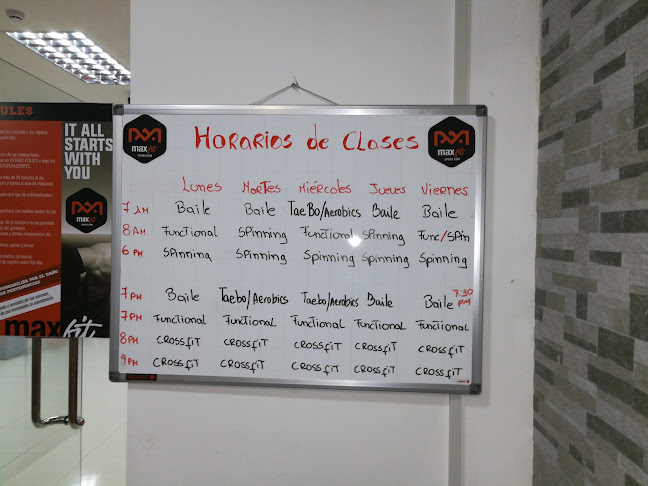 RULES
IT ALL
STARTS
WITH
YOU
max fit
max fit
max fit
SPORT GYM
HORARIOS de Clases
max fit
SPORT GYM
Lunes Martes Miércoles Jueves Viernes
7 AM Baile Baile TaeBo/Aerobics Baile Baile
8 AM Functional Spinning Functional Spinning Func/Spin
6 PM Spinning Spinning Spinning Spinning Spinning
7 PM Baile Taebo/Aerobics Taebo/Aerobics Baile Baile 7:30 PM
7 PM Functional Functional Functional Functional Functional
8 PM CROSSfiT CROSSfiT CROSSfiT CROSSfiT CROSSfiT
9 PM CROSSfiT CROSSfiT CROSSfiT CROSSfiT CROSSfiT